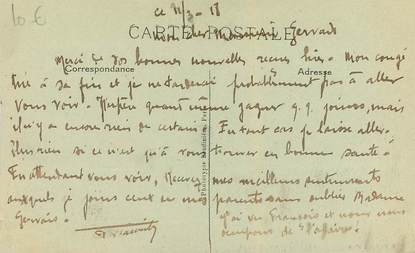 10 €
ce 11/3 - 18
CARTE POSTALE
Mon cher Monsieur Gervais
Merci de vos bonnes nouvelles reçues hier. Mon congé
Correspondance
Adresse
tire à sa fin et je ne tarderai probablement pas à aller
vous voir. quand même gagner q.q. jours, mais
il n'y a encore rien de certain. En tout cas je laisse aller.
Plus rien si ce n'est qu'à vous trouver en bonne santé.
En attendant vous voir, Recevez mes meilleurs sentiments
auxquels je joins ceux de mes parents sans oublier Madame
Gervais.
J'ai vu François et nous nous
occupons de l'affaire.